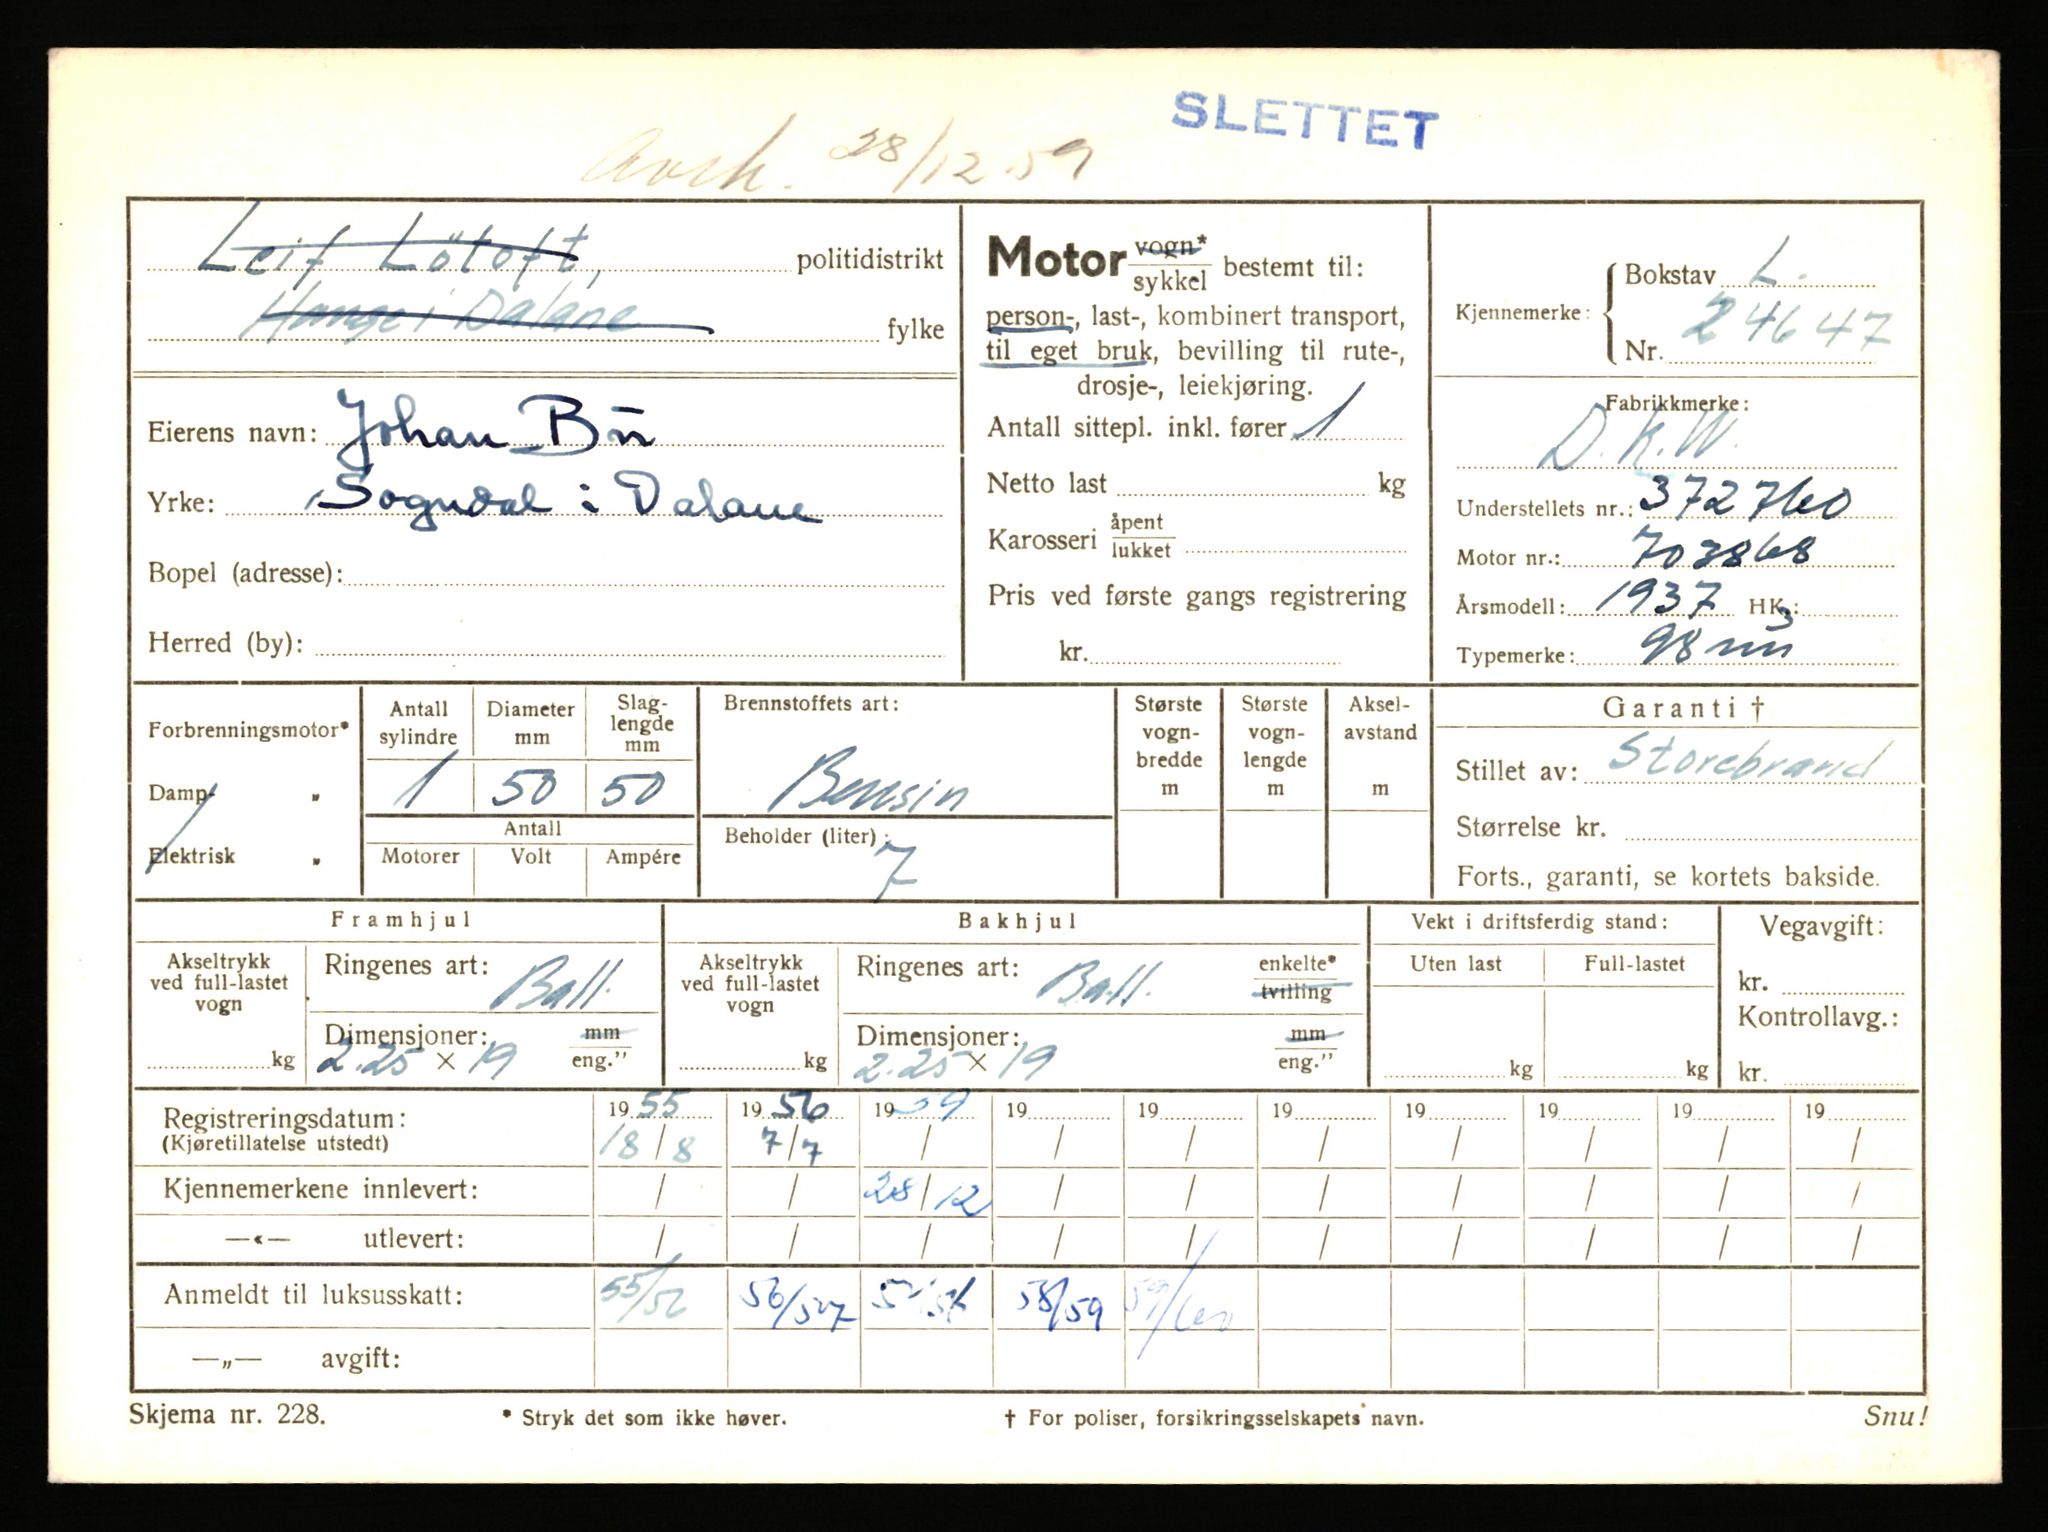 SLETTET
Avsk. 28/12.59
Leif Lötoft, politidistrikt
Hauge i Dalane fylke
Eierens navn: Johan Bü
Yrke: Sogndal i Dalane
Bopel (adresse):
Herred (by):
Motor vogn* / sykkel bestemt til:
person-, last-, kombinert transport,
til eget bruk, bevilling til rute-,
drosje-, leiekjøring.
Antall sittepl. inkl. fører 1
Netto last kg
Karosseri åpent / lukket
Pris ved første gangs registrering
kr.
Kjennemerke: Bokstav L.
Nr. 24647
Fabrikkmerke:
D.K.W.
Understellets nr.: 372760
Motor nr.: 703868
Årsmodell: 1937 HK.:
Typemerke: 98 mm3
Forbrenningsmotor*
Damp- „
Elektrisk „
Antall sylindre 1
Diameter mm 50
Slag-lengde mm 50
Antall
Motorer Volt Ampére
Brennstoffets art:
Bensin
Beholder (liter):
7
Største vogn-bredde m
Største vogn-lengde m
Aksel-avstand m
Garanti †
Stillet av: Storebrand
Størrelse kr.
Forts., garanti, se kortets bakside.
Framhjul
Akseltrykk ved full-lastet vogn kg
Ringenes art: Ball.
Dimensjoner: mm / eng."
2.25 × 19
Bakhjul
Akseltrykk ved full-lastet vogn kg
Ringenes art: Ball. enkelte* / tvilling
Dimensjoner: mm / eng."
2.25 × 19
Vekt i driftsferdig stand:
Uten last Full-lastet
kg kg
Vegavgift:
kr.
Kontrollavg.:
kr.
Registreringsdatum: 1955 1956 1959 19 19 19 19 19 19 19
(Kjøretillatelse utstedt) 18/8 7/7 / / / / / / / /
Kjennemerkene innlevert: / / 28/12 / / / / / / /
—«— utlevert: / / / / / / / / / /
Anmeldt til luksusskatt: 55/56 56/57 58/59 59/60
—„— avgift:
Skjema nr. 228. * Stryk det som ikke høver. † For poliser, forsikringsselskapets navn. Snu!